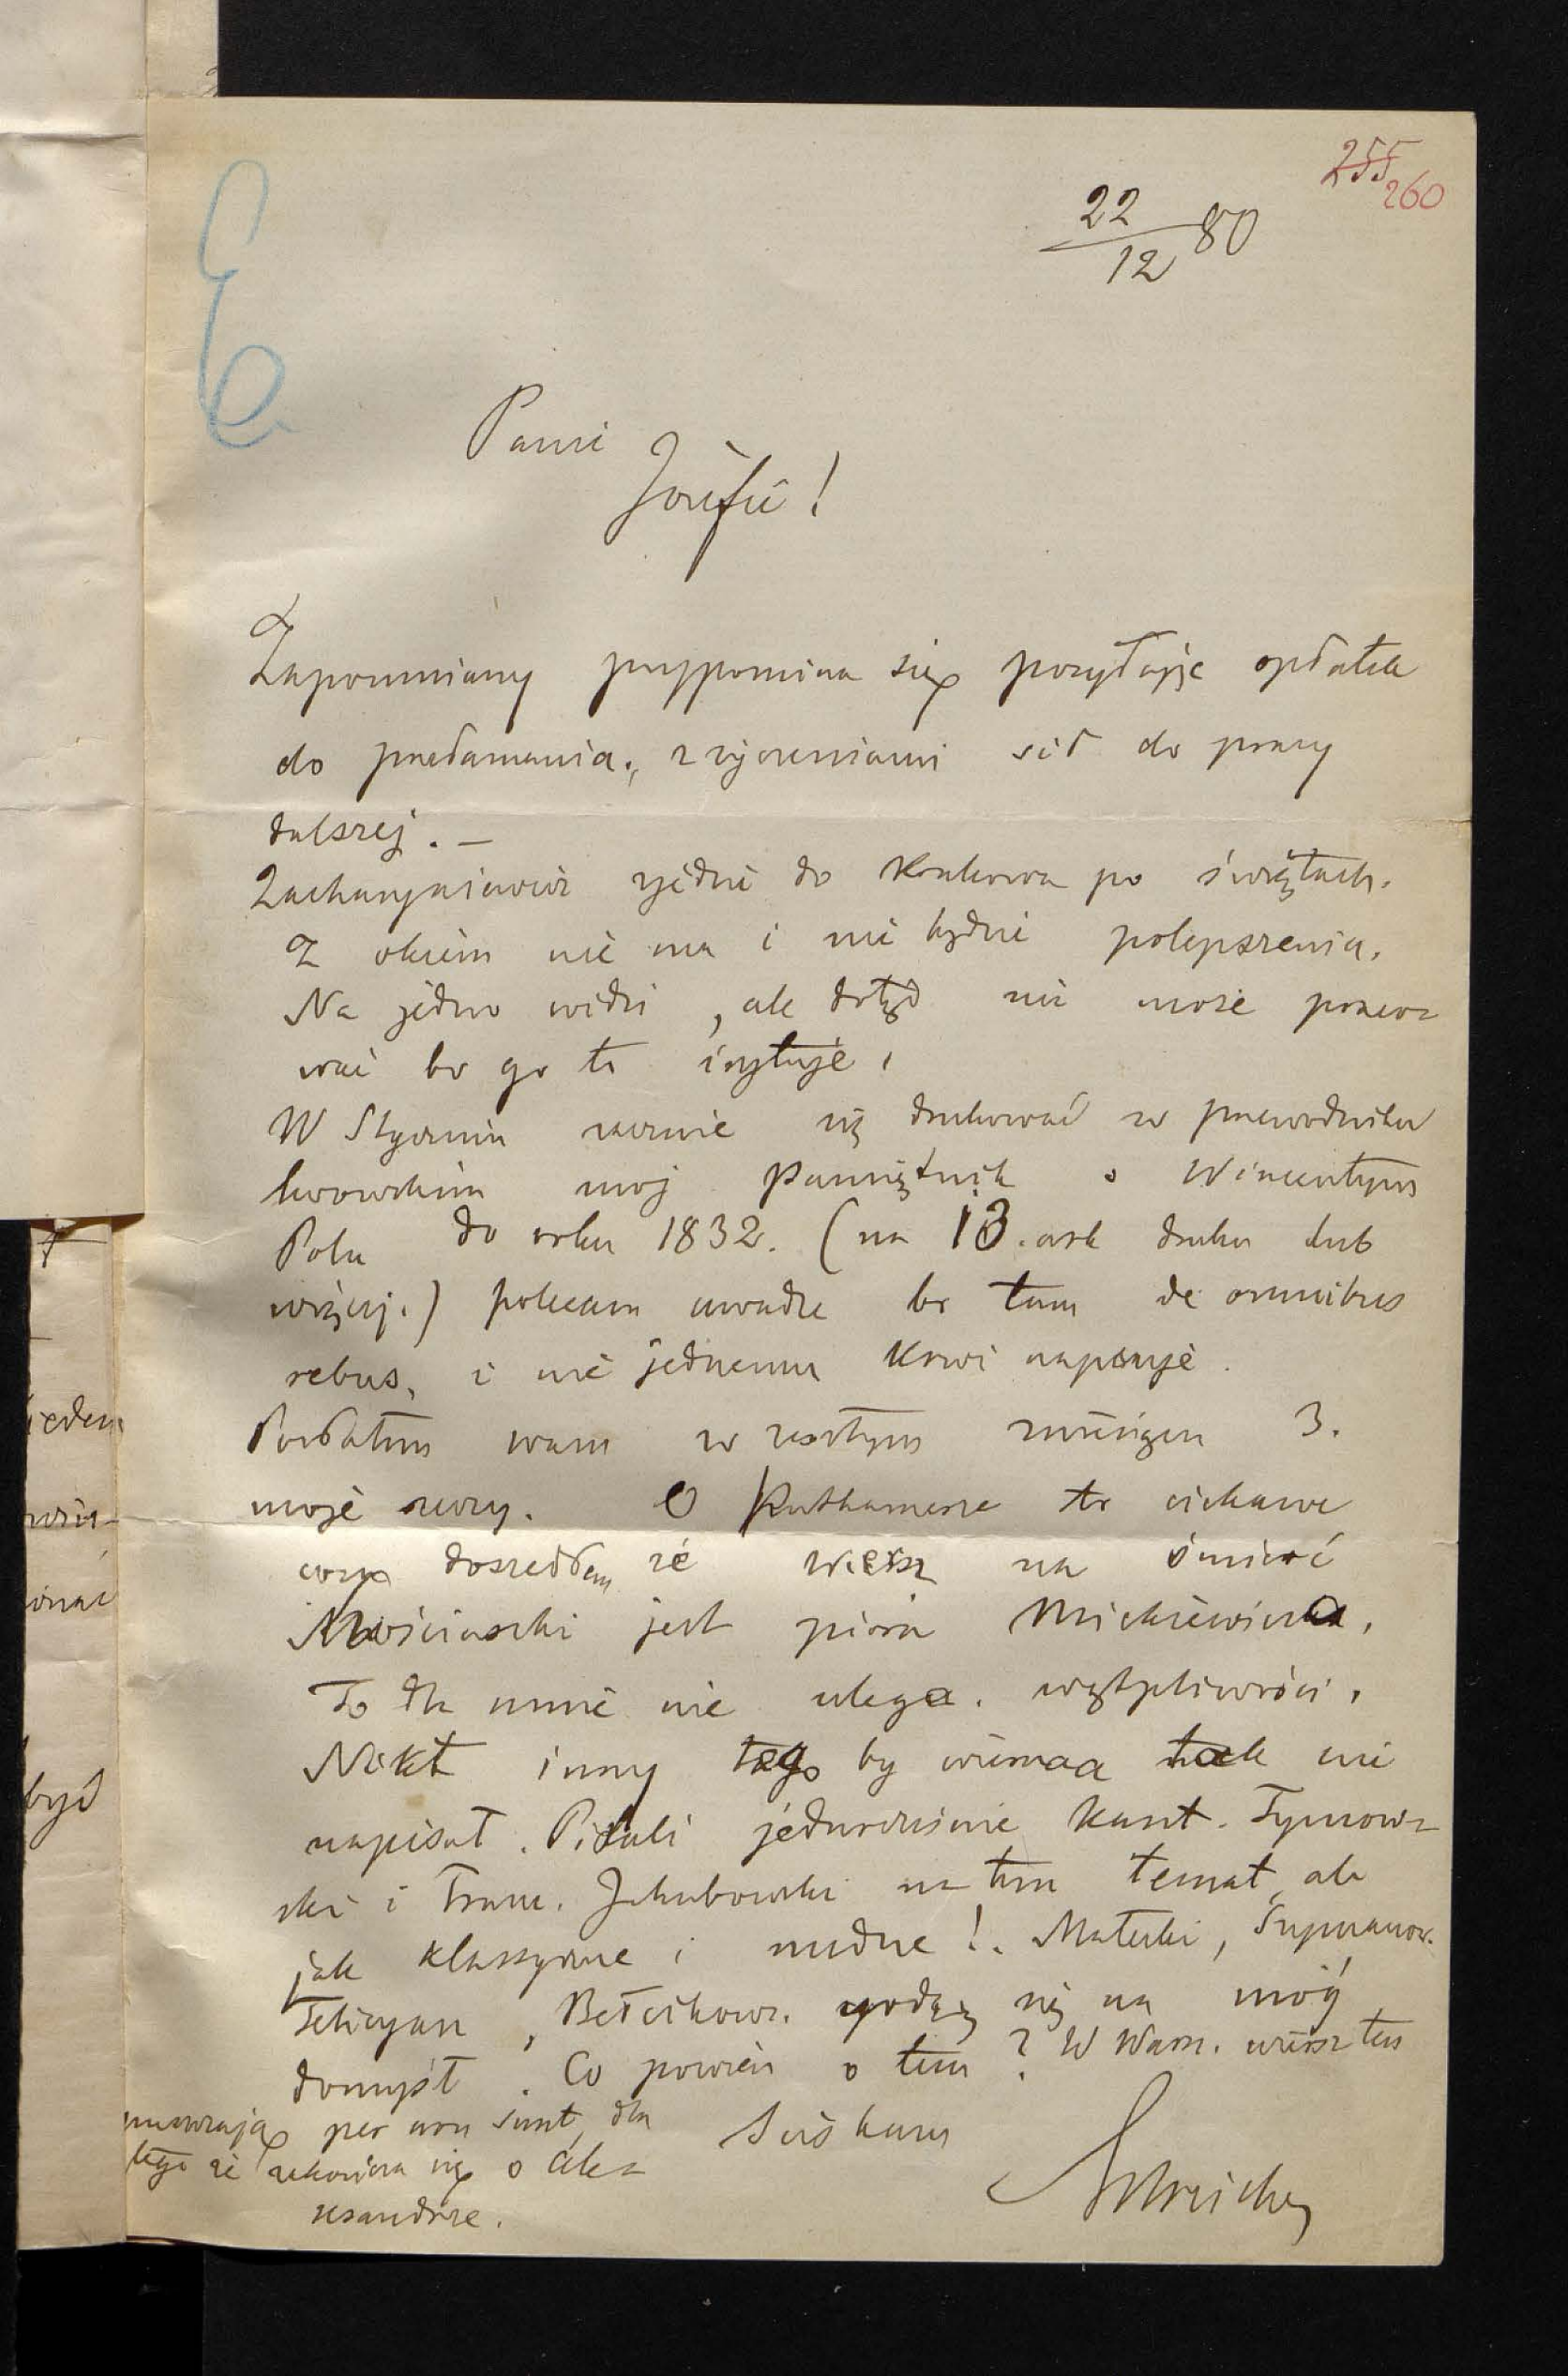 255
260
22/12 80
E
Panie
Józefie!
Zapomniany przypomina się posyłając opłatek
do przełamania, z życzeniami sił do pracy
dalszej. —
Zacharyasiewicz zjedzie do Krakowa po świętach.
Z okiem nie ma i nie będzie polepszenia.
Na jedno widzi, ale dotąd nie może praco-
wać bo go to irytuje.
W Styczniu zacznie się drukować w przewodniku
lwowskim moj Pamiętnik o Wincentym
Polu do roku 1832. (na 13. ark druku lub
więcej.) polecam uwadze bo tam de omnibus
rebus, i nie jednemu krwi napsuje.
Posłałem wam w zeszłym miesiącu 3.
moje rzeczy. O Puttkamerze to ciekawe
doszedłem że wiersz na śmierć
Kościuszki jest pióra Mickiewicza.
To dla mnie nie ulega wątpliwości.
Nikt inny tego by wiersza tak nie
napisał. Pisali jednocześnie Kant. Tymow-
ski i Fran. Jakubowski na ten temat, ale
jak klassyczne i nudne!. Małecki, Szymanow.
Felicyan, Bełcikow. godzą się na mój
domysł. Co powiesz o tem? W Warsz. wiersz ten
per non sunt, dla
tego że o Alek-
sandrze.
Ściskam
Estreicher
jeden
być